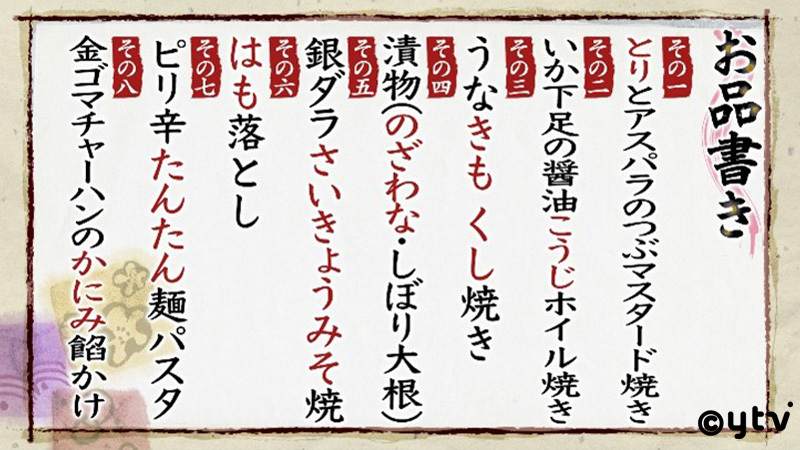 お品書き
その一
とりとアスパラのつぶマスタード焼き
その二
いか下足の醤油こうじホイル焼き
その三
うなきもくし焼き
その四
漬物(のざわな・しぼり大根)
その五
銀ダラさいきょうみそ焼
その六
はも落とし
その七
ピリ辛たんたん麺パスタ
その八
金ゴマチャーハンのかにみ餡かけ
©ytv